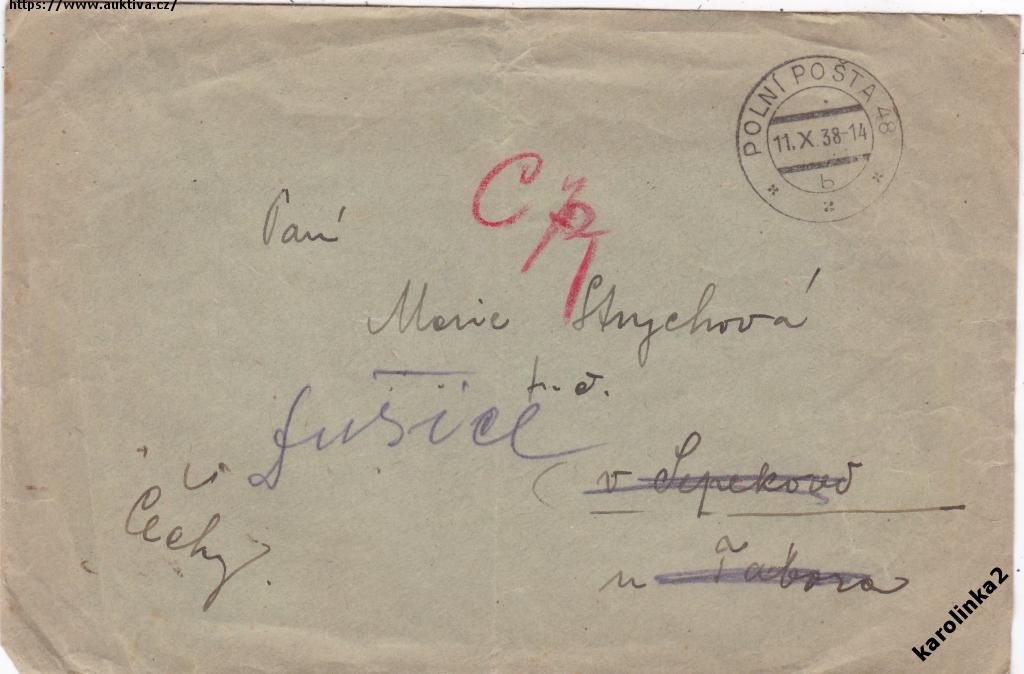 https://www.auktiva.cz/
POLNÍ POŠTA 48
11.X.38-14
b
Paní
Marie Strychová
v Sepekově
u Tábora
Čechy.
karolinka2